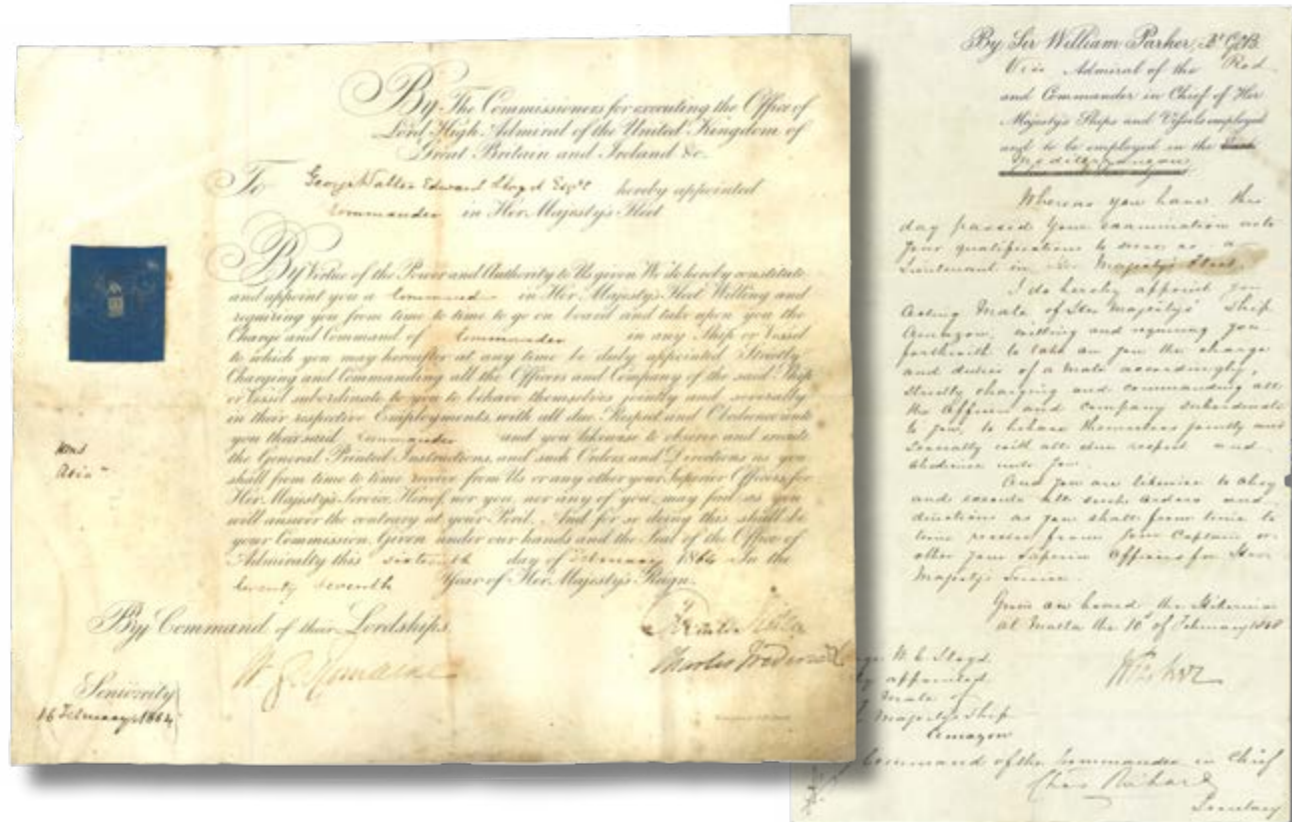 By The Commissioners for executing the Office of
Lord High Admiral of the United Kingdom of
Great Britain and Ireland &c.
To George Walter Edward Lloyd Esqre hereby appointed
Commander in Her Majesty's Fleet
By Virtue of the Power and Authority to Us given We do hereby constitute
and appoint you a Commander in Her Majesty's Fleet Willing and
requiring you from time to time to go on board and take upon you the
Charge and Command of Commander in any Ship or Vessel
to which you may hereafter at any time be duly appointed Strictly
Charging and Commanding all the Officers and Company of the said Ship
or Vessel subordinate to you to behave themselves jointly and severally
in their respective Employments, with all due Respect and Obedience unto
you their said Commander and you likewise to observe and execute
the General Printed Instructions, and such Orders and Directions as you
shall from time to time receive from Us or any other your Superior Officers for
Her Majesty's Service. Hereof, nor you, nor any of you, may fail as you
will answer the contrary at your Peril. And for so doing this shall be
your Commission. Given under our hands and the Seal of the Office of
Admiralty this sixteenth day of February 1864 In the
twenty seventh Year of Her Majesty's Reign.
HMS
Asia
By Command of their Lordships,
W. G. Romaine
Charles Frederick
Seniority
16 February 1864
By Sir William Parker, Bt GCB
Vice Admiral of the Red
and Commander in Chief of Her
Majesty's Ships and Vessels employed
and to be employed in the
Mediterranean
Whereas you have this
day passed your examination as to
your qualifications to serve as a
Lieutenant in Her Majesty's Fleet,
I do hereby appoint you
Acting Mate of Her Majesty's Ship
Amazon, willing and requiring you
forthwith to take on you the charge
and duties of a Mate accordingly,
strictly charging and commanding all
the Officers and Company subordinate
to you, to behave themselves jointly and
severally with all due respect and
obedience unto you.
And you are likewise to obey
and execute all such orders and
directions as you shall from time to
time receive from your Captain or
other your Superior Officers for Her
Majesty's Service.
Given on board the Hibernia
at Malta the 10th of February 1848
W Parker
W. E. Lloyd
appointed
Mate of
Majesty's Ship
Amazon
Command of the Commander in Chief
Chas Richards
Secretary